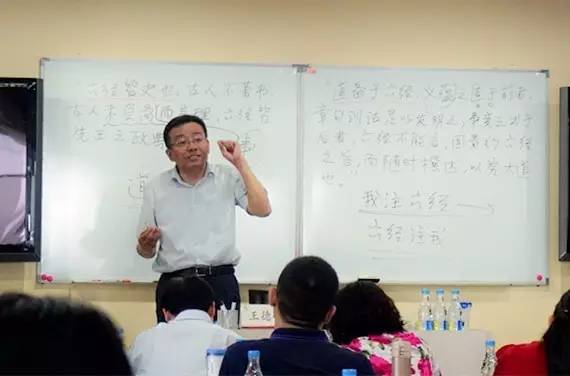 六经皆史也,古人不著书
古人未尝离而言理,六经皆
先王之政典
事
道
道备于六经,义蕴之匿于前者,
章句训诂足以发明之,事变之出于
后者,六经不能言,固贵约六经
之旨,而随时撰述,以究大道
也。
我注六经
六经注我
王德